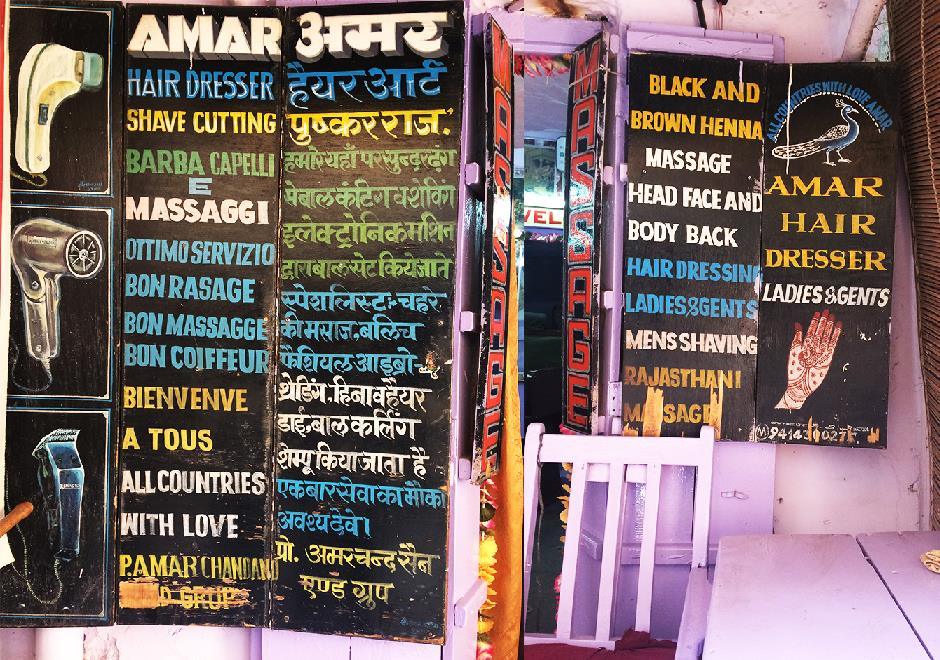 AMAR
HAIR DRESSER
SHAVE CUTTING
BARBA CAPELLI
E
MASSAGGI
OTTIMO SERVIZIO
BON RASAGE
BON MASSAGGE
BON COIFFEUR
BIENVENVE
A TOUS
ALL COUNTRIES
WITH LOVE
P.AMAR CHANDAND
GRUP
अमर
हैयर आर्ट
पुष्करराज.
हमारे यहाँ पर सुन्दर ढंग
से बाल कंटिग व शेकिंग
इलेक्ट्रोनिक मशिन
द्वारा बाल सेट किये जाते
स्पेशलिस्ट:- चहरे
की मसाज. बलिच
फैशियल आइब्रो-
थ्रेडिंग. हिना व हैयर
डाई. बाल कर्लिंग
शेम्पू किया जाता है
एक बार सेवा का मौका
अवश्य देवे।
प्रो. अमरचन्द सैन
एण्ड ग्रुप
MASSAGE
VEL
BLACK AND
BROWN HENNA
MASSAGE
HEAD FACE AND
BODY BACK
HAIR DRESSING
LADIES&GENTS
MENS SHAVING
RAJASTHANI
MASSAGE
ALL COUNTRIES WITH LOVE AMAR
AMAR
HAIR
DRESSER
LADIES & GENTS